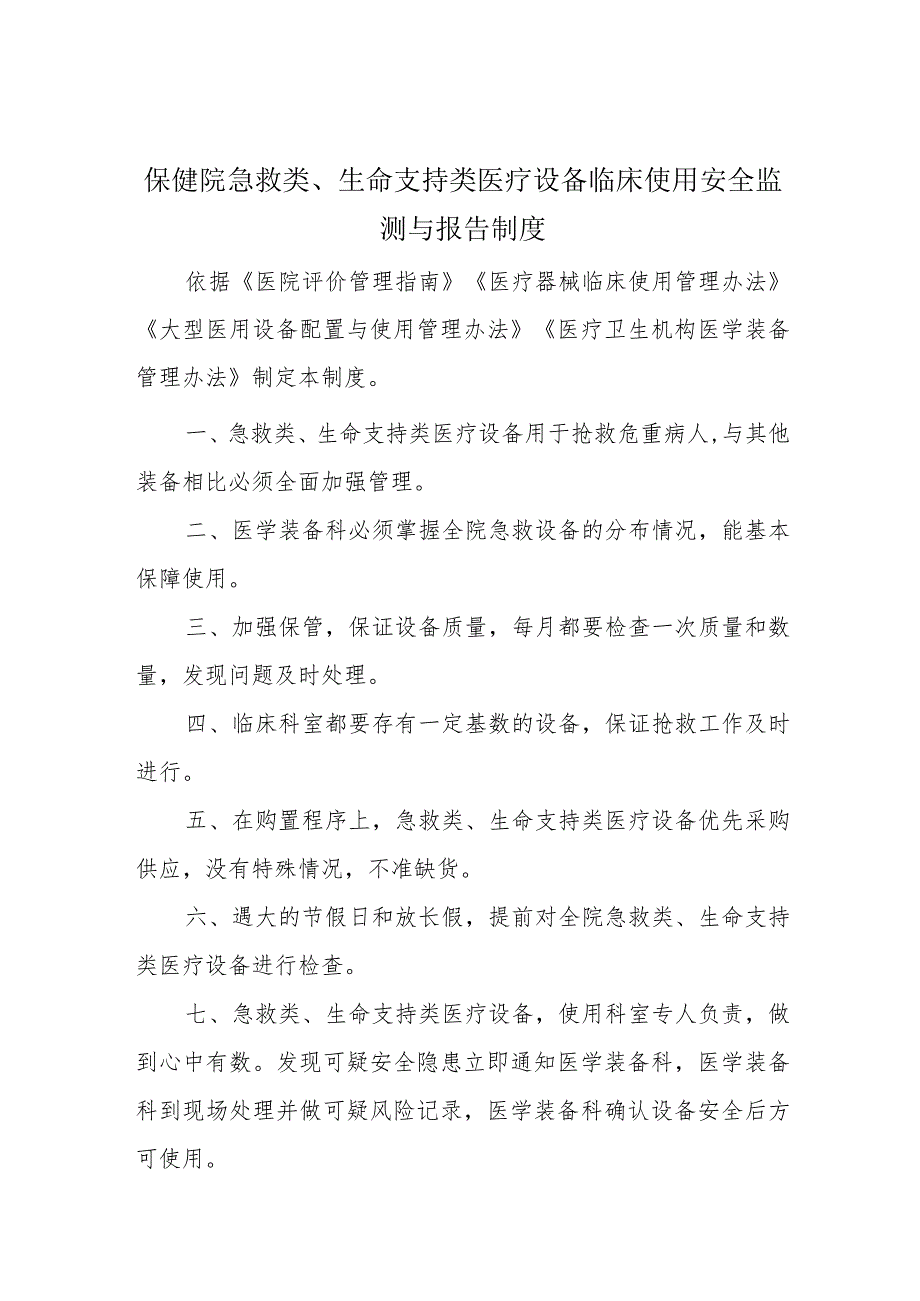 保健院急救类、生命支持类医疗设备临床使用安全监
测与报告制度
依据《医院评价管理指南》《医疗器械临床使用管理办法》
《大型医用设备配置与使用管理办法》《医疗卫生机构医学装备
管理办法》制定本制度。
一、急救类、生命支持类医疗设备用于抢救危重病人,与其他
装备相比必须全面加强管理。
二、医学装备科必须掌握全院急救设备的分布情况，能基本
保障使用。
三、加强保管，保证设备质量，每月都要检查一次质量和数
量，发现问题及时处理。
四、临床科室都要存有一定基数的设备，保证抢救工作及时
进行。
五、在购置程序上，急救类、生命支持类医疗设备优先采购
供应，没有特殊情况，不准缺货。
六、遇大的节假日和放长假，提前对全院急救类、生命支持
类医疗设备进行检查。
七、急救类、生命支持类医疗设备，使用科室专人负责，做
到心中有数。发现可疑安全隐患立即通知医学装备科，医学装备
科到现场处理并做可疑风险记录，医学装备科确认设备安全后方
可使用。